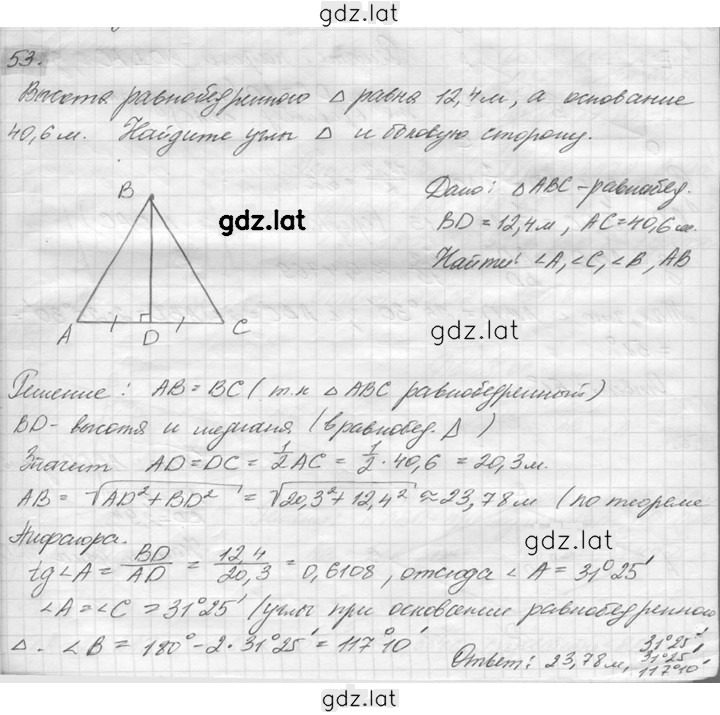 gdz.lat
53.
Высота равнобедренного △ равна 12,4м, а основание
40,6м. Найдите углы △ и боковую сторону.
B
gdz.lat
A D C
Дано: △ABC-равнобед.
BD=12,4м, AC=40,6м.
Найти: ∠A,∠C,∠B, AB
gdz.lat
Решение: AB=BC (т.к △ABC равнобедренный)
BD- высота и медиана (в равнобед. △)
Значит AD=DC=1/2AC=1/2·40,6=20,3м.
AB=√(AD²+BD²)=√(20,3²+12,4²)≈23,78м (по теореме
Пифагора. gdz.lat
tg∠A=BD/AD=12,4/20,3=0,6108, отсюда ∠A=31°25′
∠A=∠C=31°25′ (углы при основание равнобедренного
△. ∠B=180°-2·31°25′=117°10′
Ответ: 23,78м, 31°25′,
31°25′
117°10′
gdz.lat